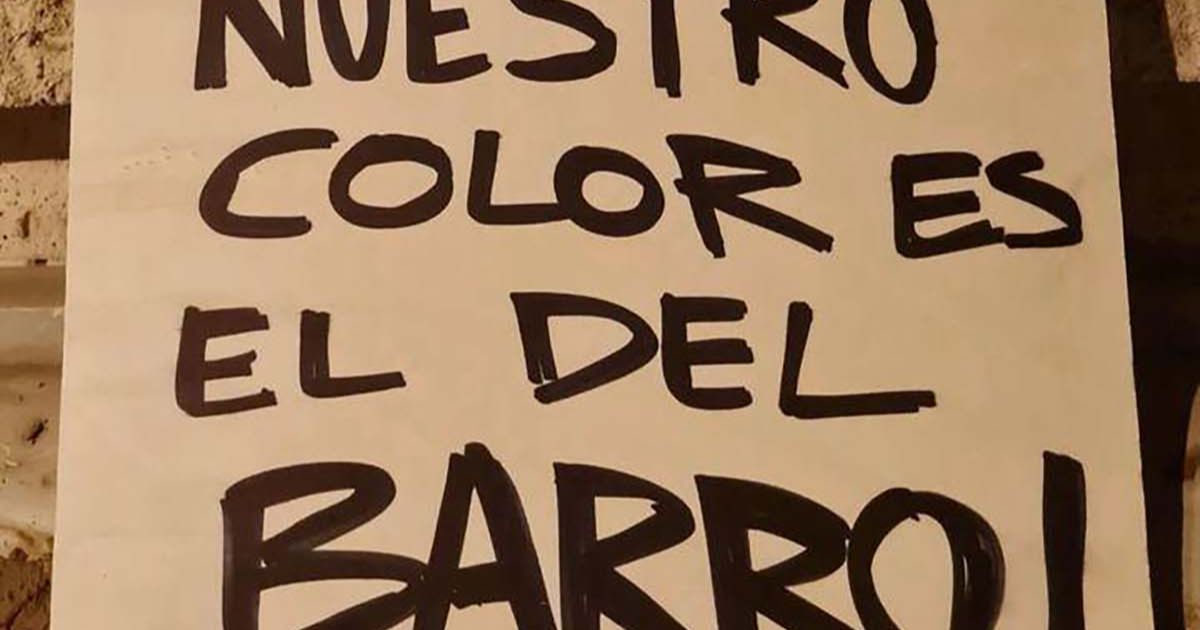 NUESTRO
COLOR ES
EL DEL
BARRO!